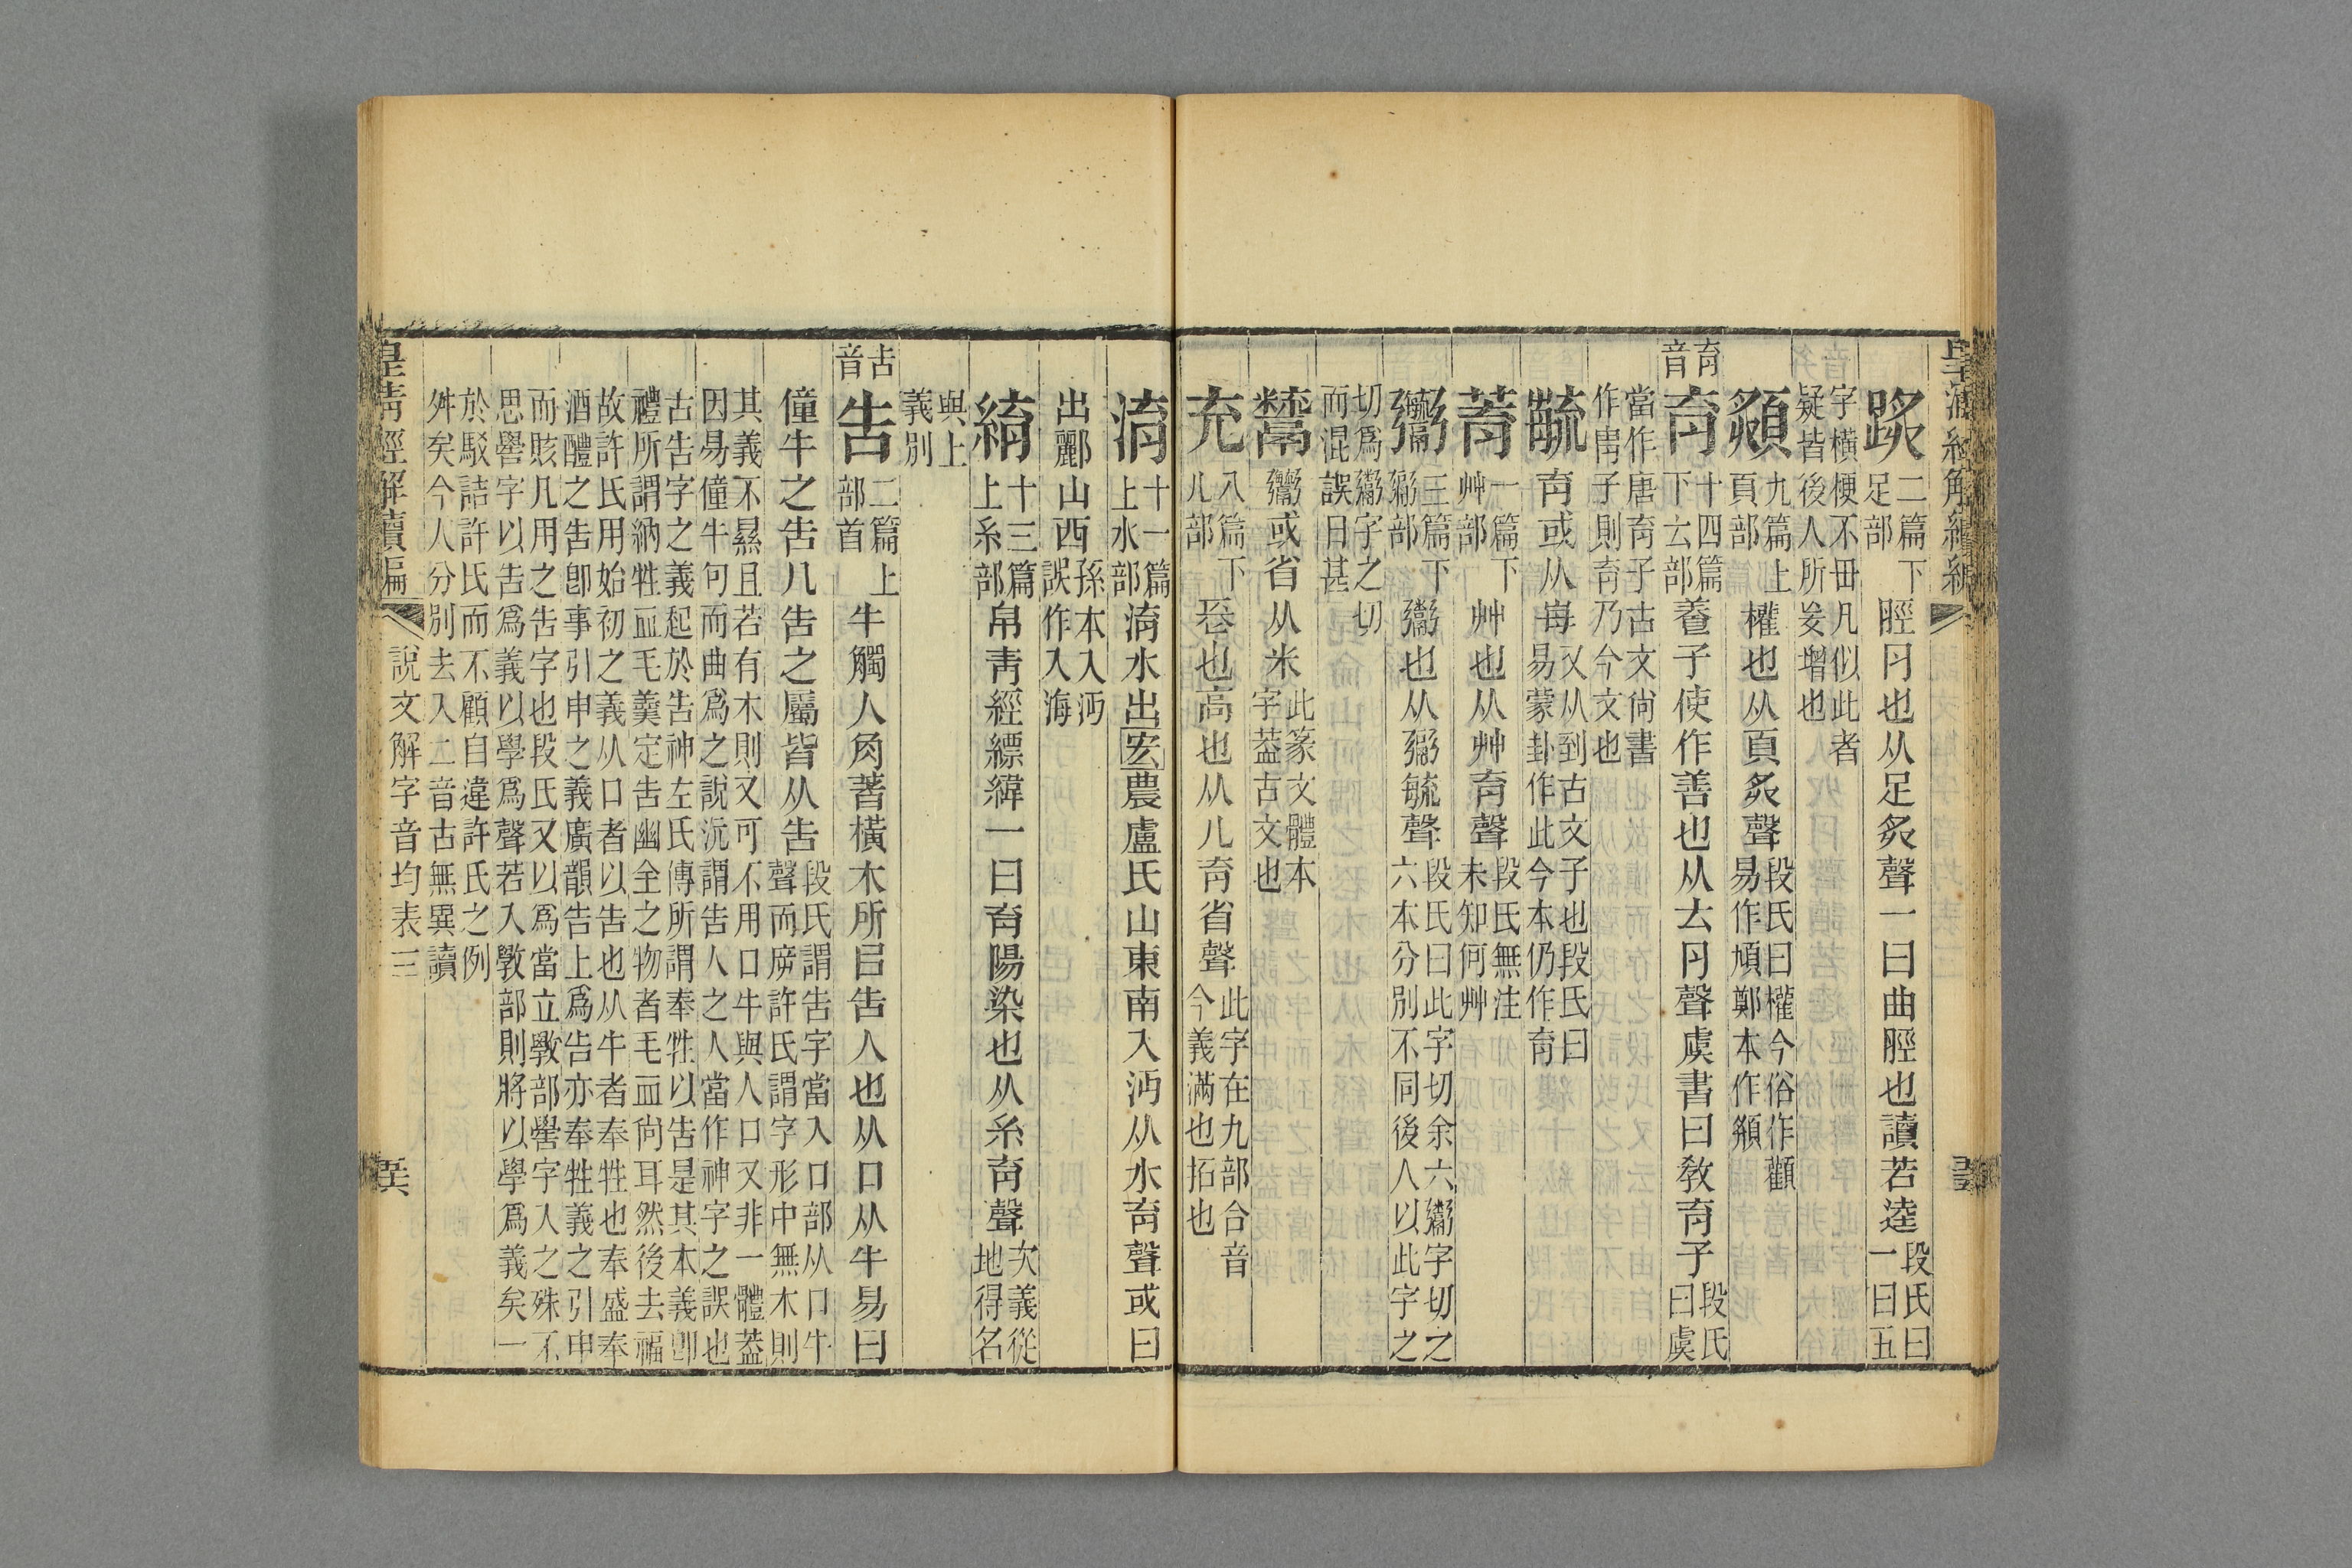 皇清經解續編
䟫二篇下足部脛冃也从足炙聲一曰曲脛也讀若逵段氏曰一曰五
字橫梗不毌凡似此者疑皆後人所妄增也
頯九篇上頁部權也从頁炙聲段氏曰權今俗作顴易作頄鄭本作頯
育音育十四篇下𠫓部養子使作善也从𠫓冃聲虞書曰敎育子段氏曰虞
當作唐育子古文尚書作胄子則育乃今文也
毓育或从每又从到古文子也段氏曰易蒙卦作此今本仍作育
䔰一篇下艸部艸也从艸育聲段氏無注未知何艸
三篇下部也从毓聲段氏曰此字切余六字切之六本分別不同後人以此字之
切爲字之切而混誤日甚
鬻或省从米此篆文體本字葢古文也
充八篇下儿部長也高也从儿育省聲此字在九部合音今義滿也拓也
淯十一篇上水部淯水出宏農盧氏山東南入沔从水育聲或曰
出酈山西孫本入沔誤作入海
綃十三篇上糸部帛靑經縹緯一曰育陽染也从糸育聲次義從地得名
與上義別
古音告二篇上部首牛觸人角著橫木所㠯告人也从口从牛易曰
僮牛之告凡告之屬皆从告段氏謂告字當入口部从口牛聲而庌許氏謂字形中無木則
其義不㬎且若有木則又可不用口牛與人口又非一體葢因易僮牛句而曲爲之說沅謂告人之人當作神字之誤也
古告字之義起於告神左氏傳所謂奉牲以告是其本義卽禮所謂納牲血毛羹定告幽全之物者毛血尙耳然後去福
故許氏用始初之義从口者以告也从牛者奉牲也奉盛奉酒醴之告卽事引申之義廣韻告上爲告亦奉牲義之引申
而賅凡用之告字也段氏又以爲當立斆部嚳字入之殊不思嚳字以告爲義以學爲聲若入斆部則將以學爲義矣一
於駁詰許氏而不顧自違許氏之例舛矣今人分別去入二音古無異讀
皇清經解續編 說文解字音均表三